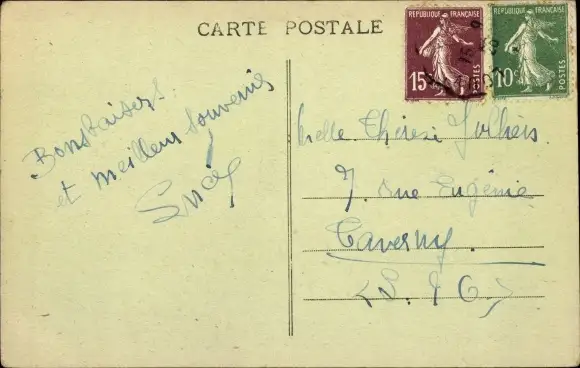 CARTE POSTALE
REPUBLIQUE FRANÇAISE
15c
POSTES
REPUBLIQUE FRANÇAISE
10c
POSTES
Bons Baisers
et meilleurs souvenirs
Melle Thérèse
7. rue Eugénie
Taverny
(S. & O.)